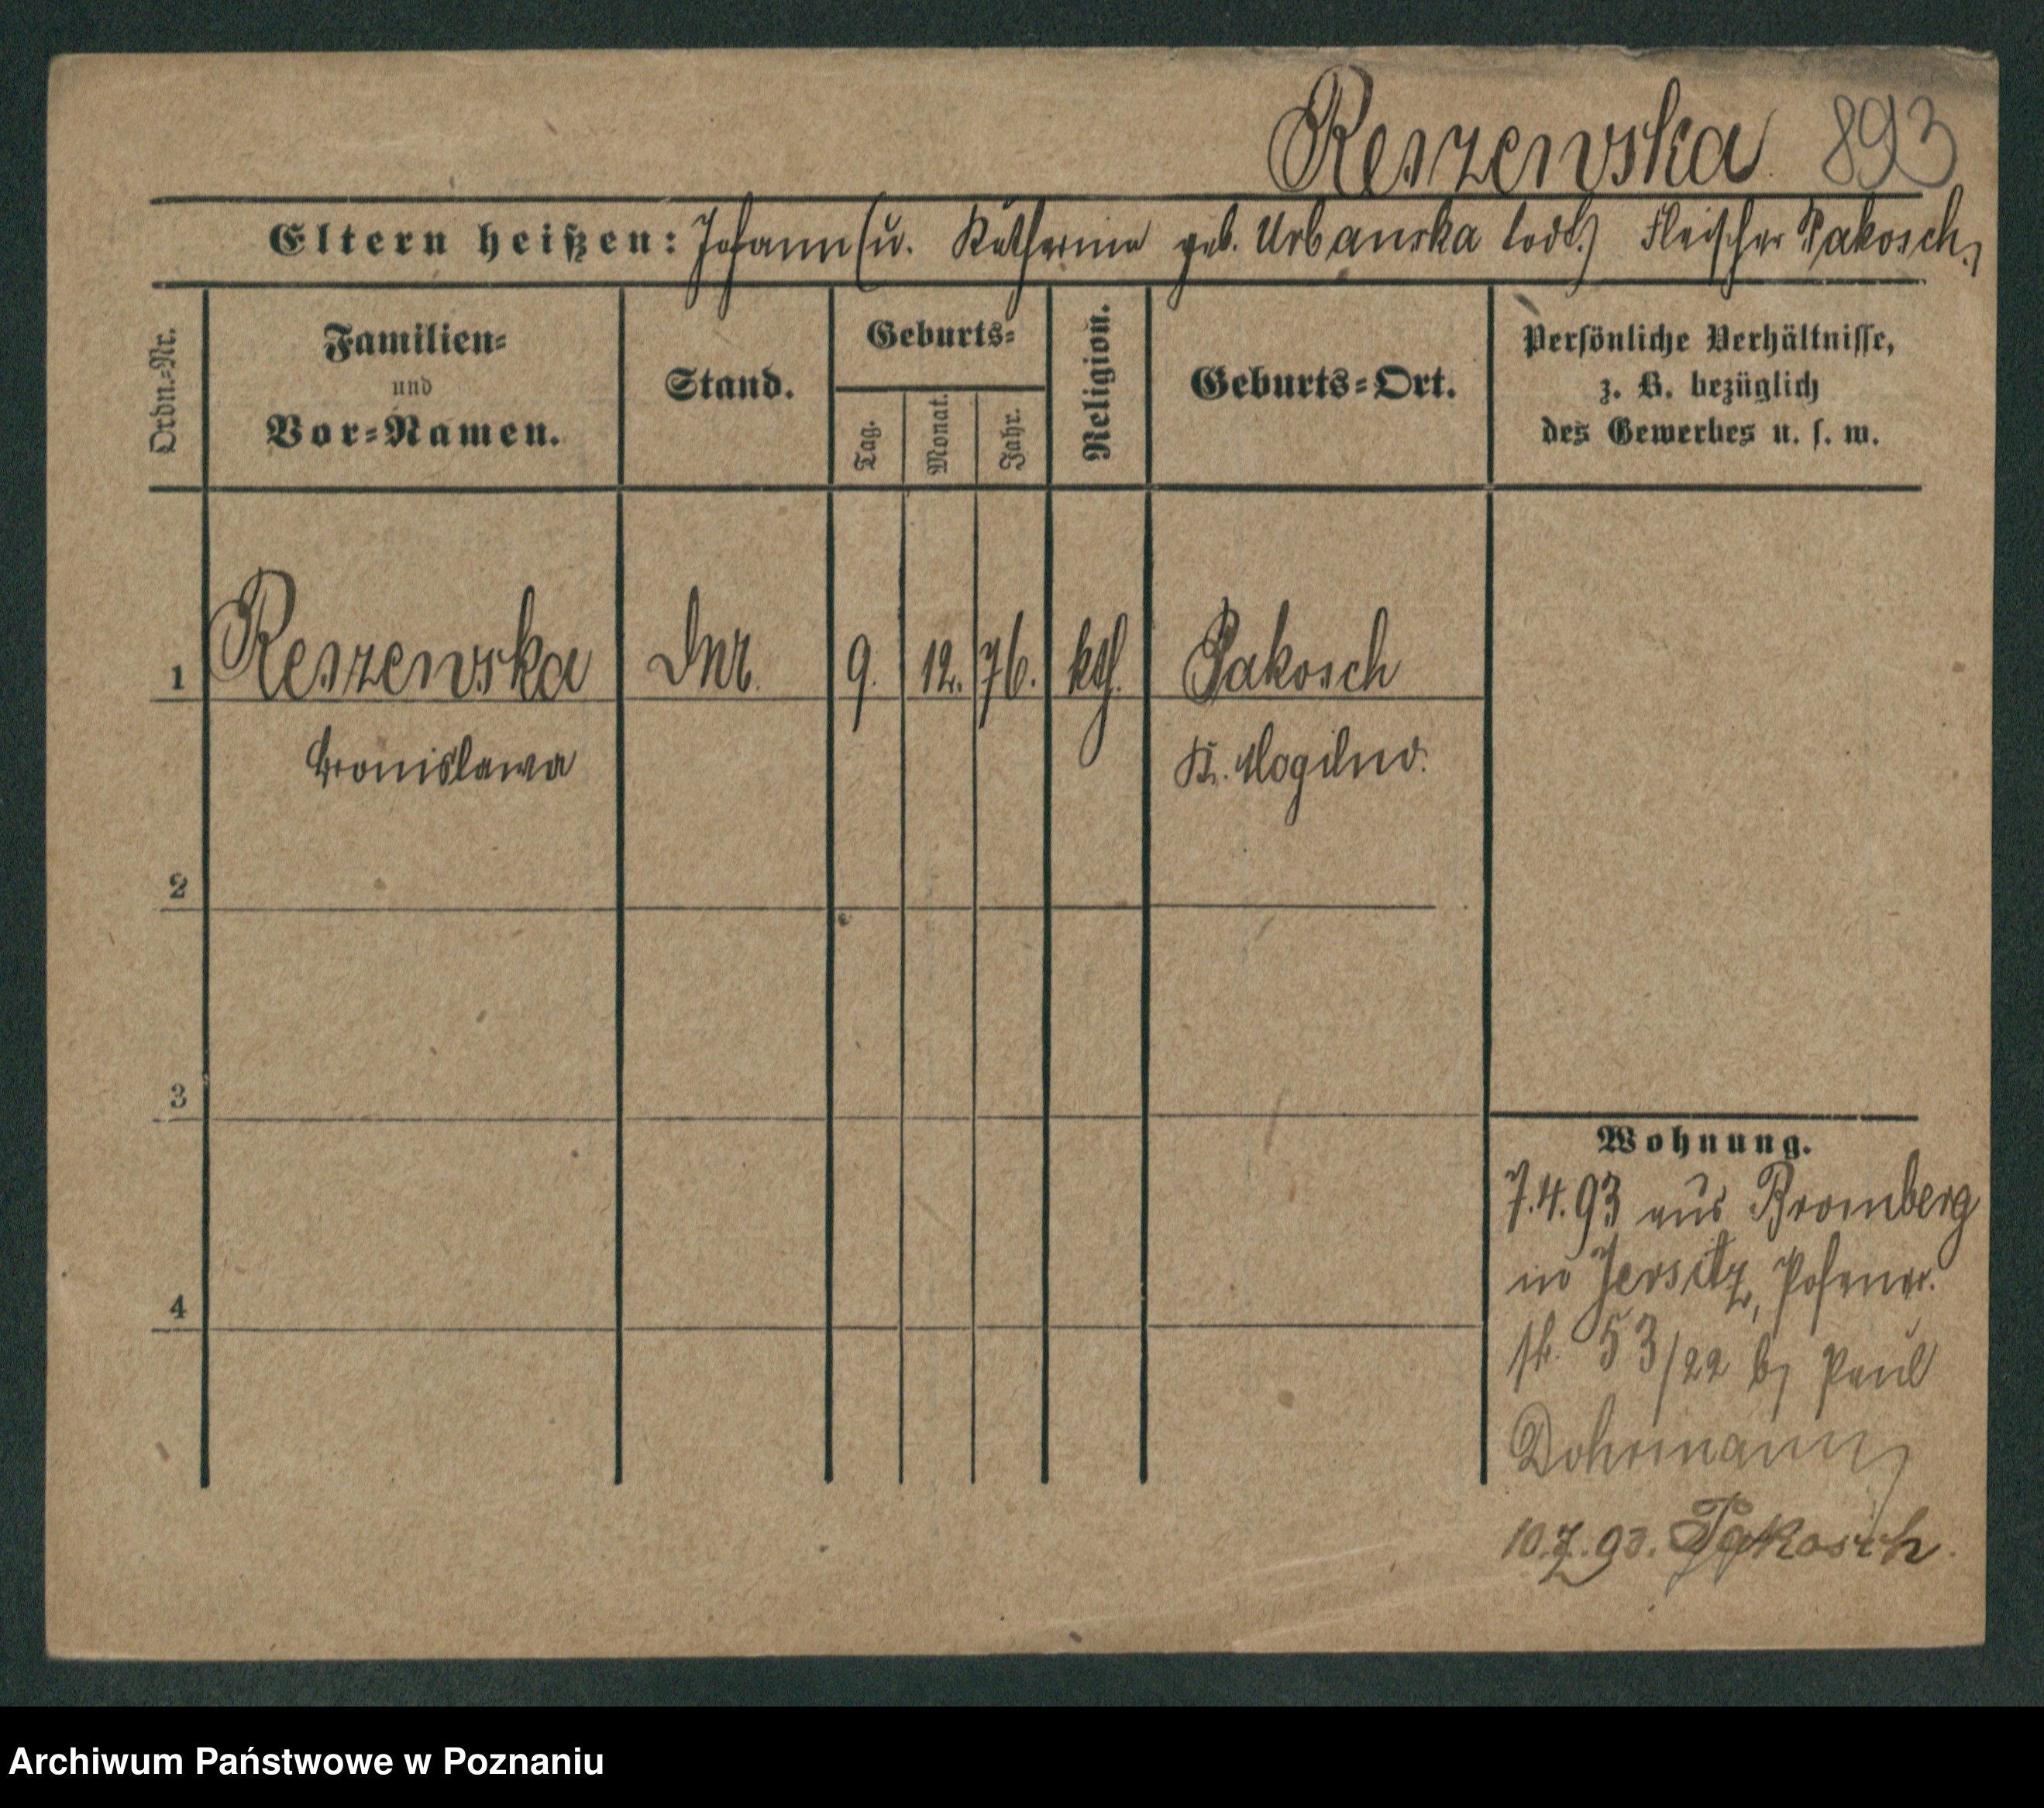 Reszewska 893
Eltern heißen: Johann (u. Katharina geb. Urbanska todt.) Fleischer Pakosch.
Ordn.-Nr.
Familien-
und
Vor-Namen.
Stand.
Geburts-
Tag.
Monat.
Jahr.
Religion.
Geburts-Ort.
Persönliche Verhältnisse,
z. B. bezüglich
des Gewerbes u. s. w.
1 Reszewska 9. 12. 76. kth. Pakosch
Bronislawa Kr. Mogilno.
2
3
4
Wohnung.
7.4.93 aus Bromberg
in Jersitz, Posener
str. 53/22 bei Paul
Dohrmann
10.7.93. Pakosch.
Archiwum Państwowe w Poznaniu